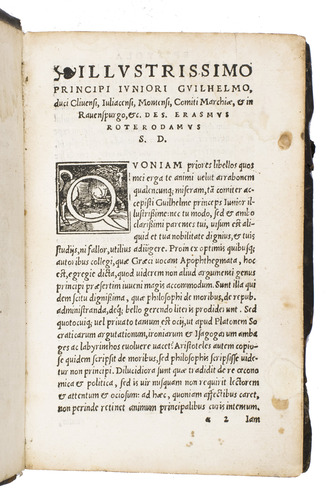 ILLVSTRISSIMO
PRINCIPI IVNIORI GVILHELMO,
duci Clivensi, Iuliacensi, Montensi, Comiti Marchiæ, & in
Ravenspurgo, &c. DES. ERASMVS
ROTERODAMVS
S. D.
QVONIAM priores libellos quos
mei erga te animi velut arrabonem
qualencunq; miseram, tã comiter ac-
cepisti Guilhelme princeps Iunior il-
lustrissime: nec tu modo, sed & ambo
clarissimi parentes tui, visum est ali-
quid et tua nobilitate dignius, & tuis
studijs, ni fallor, utilius adiũgere. Proin ex optimis quibusq;
autoribus collegi, quæ Græci vocant Apophthegmata, hoc
est, egregie dicta, quod viderem non aliud argumenti genus
principi præsertim iuveni magis accommodum. Sunt illa qui
dem scitu dignissima, quæ philosophi de moribus, de repub.
administranda, de bello gerendo literis prodiderunt. Sed
quotocuiq; vel privato tantum est ocij, ut apud Platonem So
craticarum argutationum, ironiarum & Isagogarum amba
ges ac labyrinthos evoluere vacet? Aristoteles autem copio-
se quidem scripsit de moribus, sed philosophis scripsisse vide
tur non principi. Dilucidiora sunt quæ tradidit de re œcono
mica & politica, sed is vir nusquam non requirit lectorem
& attentum & ociosum: ad hæc, quoniam affectibus caret,
non perinde retinet animum principalibus curis intentum.
a 2 Iam